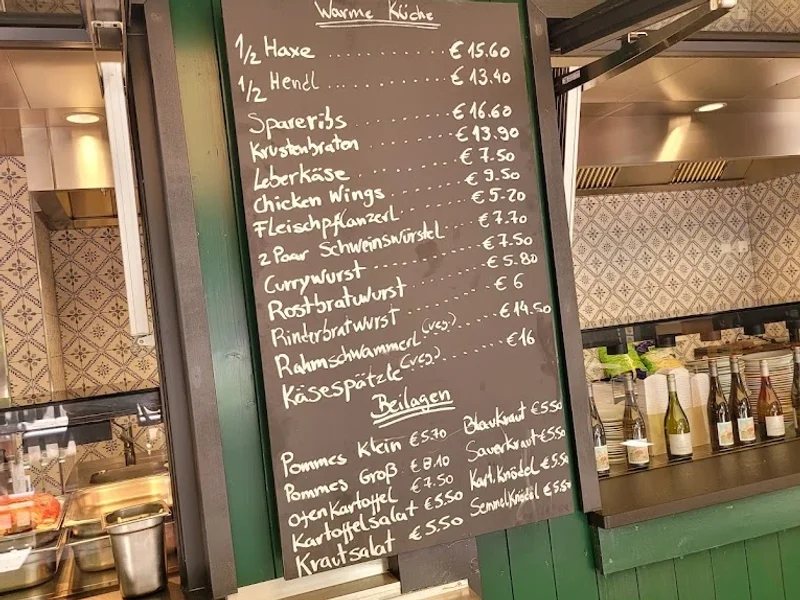 Warme Küche
1/2 Haxe .......... € 15.60
1/2 Hendl .......... € 13.40
Spareribs .......... € 16.60
Krustenbraten .......... € 13.90
Leberkäse .......... € 7.50
Chicken Wings .......... € 9.50
Fleischpflanzerl .......... € 5.20
2 Paar Schweinswürstel .......... € 7.70
Currywurst .......... € 7.50
Rostbratwurst .......... € 5.80
Rinderbratwurst .......... € 6
Rahmschwammerl (veg.) .......... € 14.50
Käsespätzle (veg.) .......... € 16
Beilagen
Pommes Klein € 5.70
Pommes Groß € 8.10
Ofenkartoffel € 7.50
Kartoffelsalat € 5.50
Krautsalat € 5.50
Blaukraut € 5.50
Sauerkraut € 5.50
Kart. Knödel € 5.50
Semmelknödel € 5.50